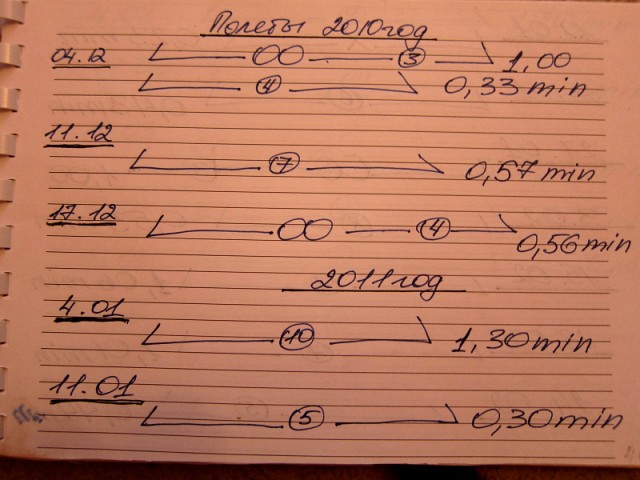 Полеты 2010год
04.12 OO 3 1,00
4 0,33 min
11.12
7 0,57 min
17.12 OO 4 0,56 min
2011год
4.01
10 1,30 min
11.01
5 0,30 min